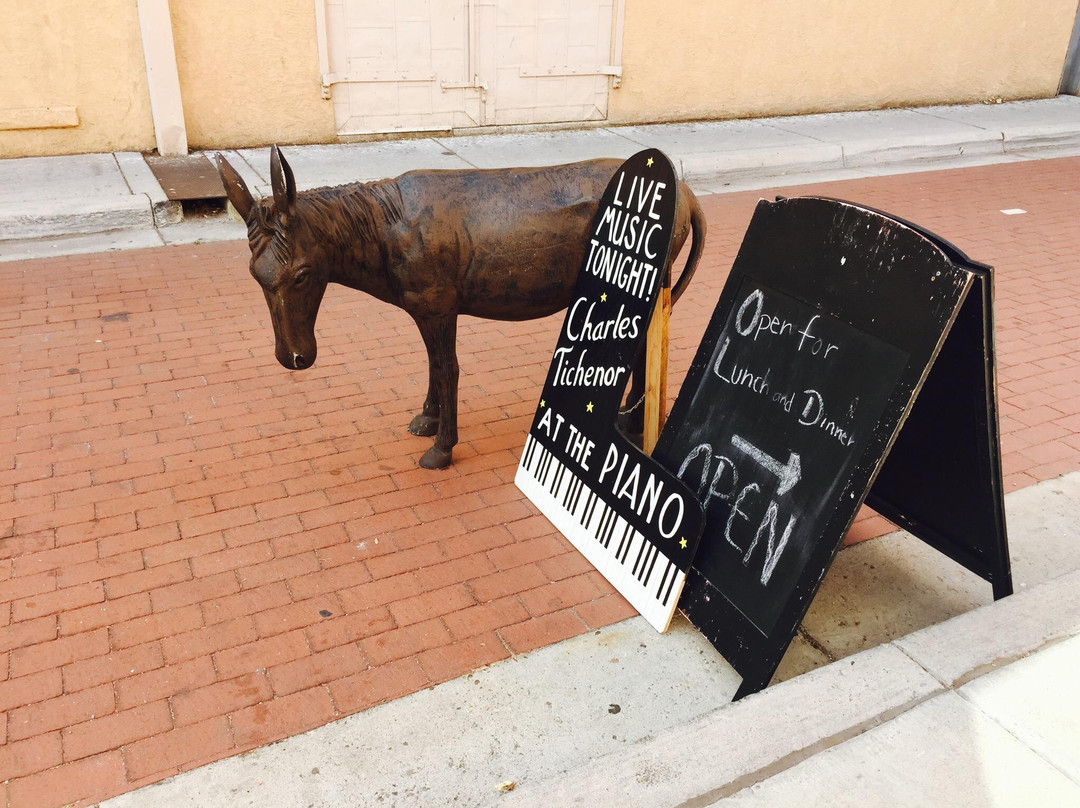 LIVE
MUSIC
TONIGHT!
Charles
Tichenor
AT THE PIANO
Open for
Lunch and Dinner
OPEN